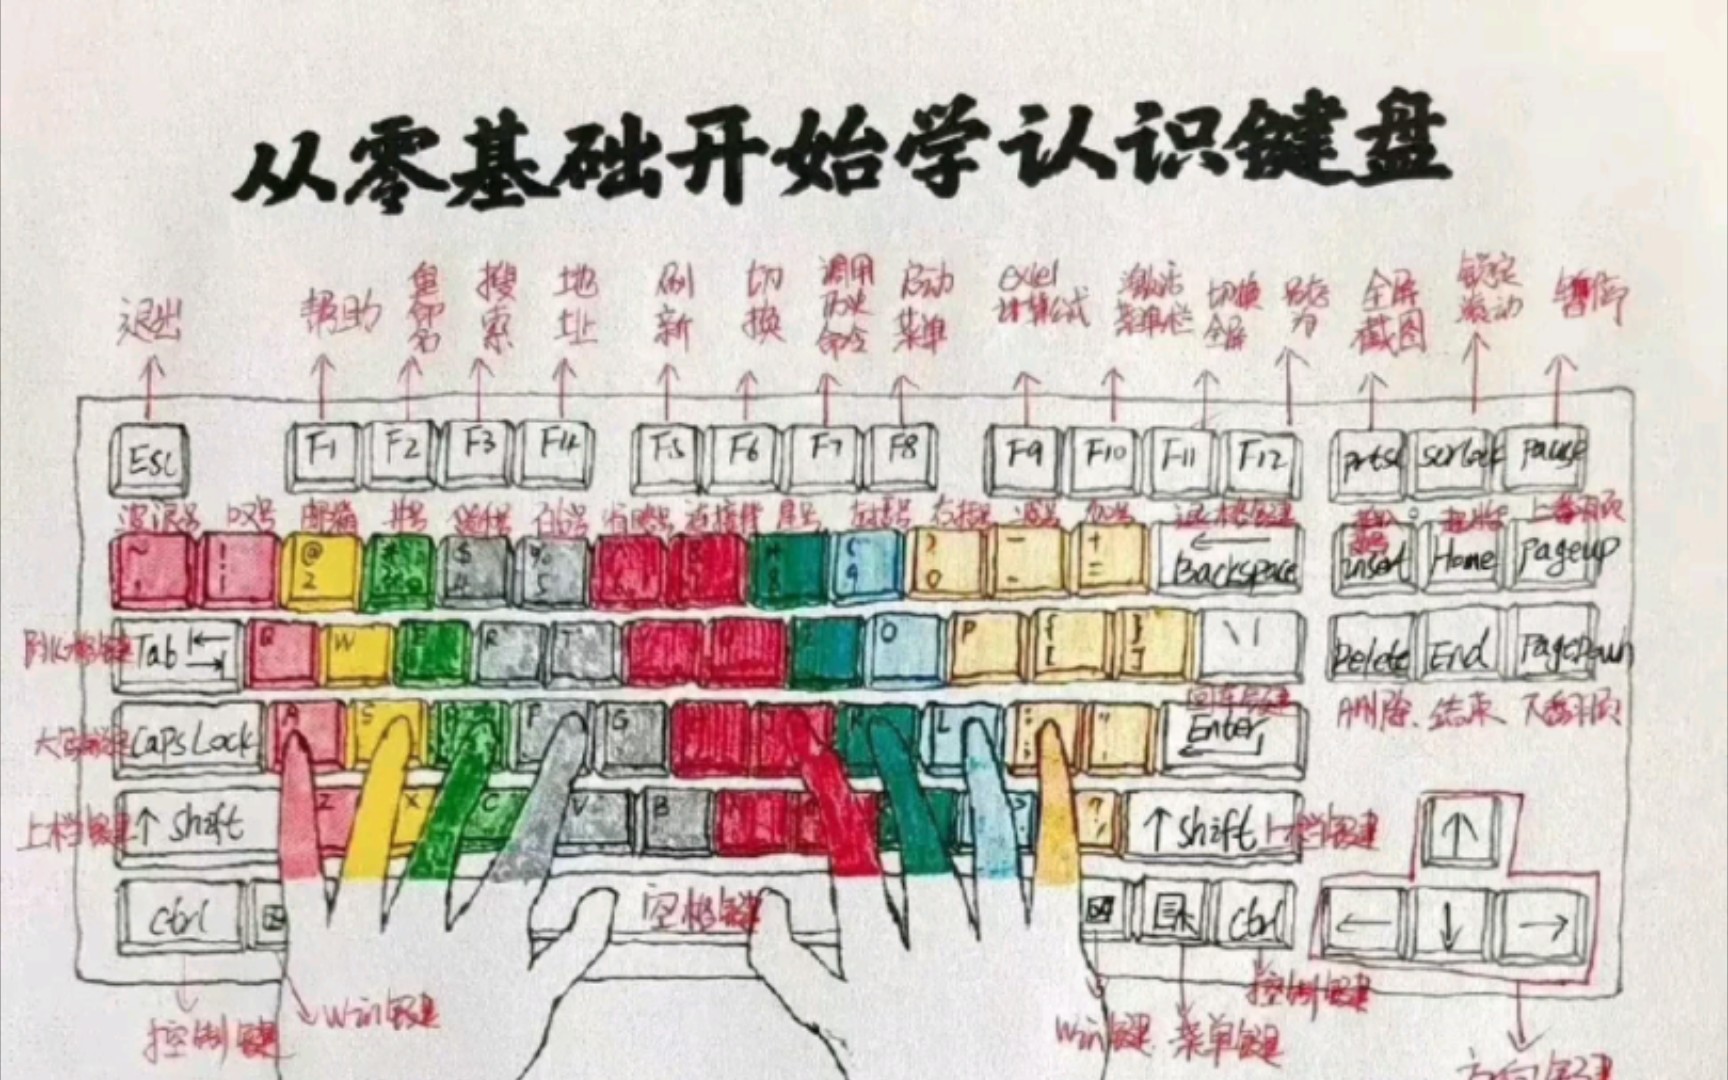 从零基础开始学认识键盘
退出 帮助 重命名 搜索 地址 刷新 切换 调用历史命令 启动菜单 excel计算公式 激活菜单栏 切换全屏 另存为 全屏截图 锁定滚动 暂停
Esc F1 F2 F3 F4 F5 F6 F7 F8 F9 F10 F11 F12 prtsc scrlock pause
波浪号 叹号 邮箱 井号 百分号 连接符 星号 左括号 右括号 减号 加号 退格键 上翻页
~ ! @ 2 # $ 4 % 5 8 ( 9 ) 0 - - + = ← Backspace insert Home Pageup
Tab Q W E R T I O P { [ } ] \ | Delete End PageDown
回车键 删除 结束 下翻页
Caps Lock A S F G J K L : ; " Enter
上档键 ↑ shift Z X C V B ? ↑ shift 上档键 ↑
ctrl 空格键 ctrl ← ↓ →
控制键 win键 win键 菜单键 控制键 方向键